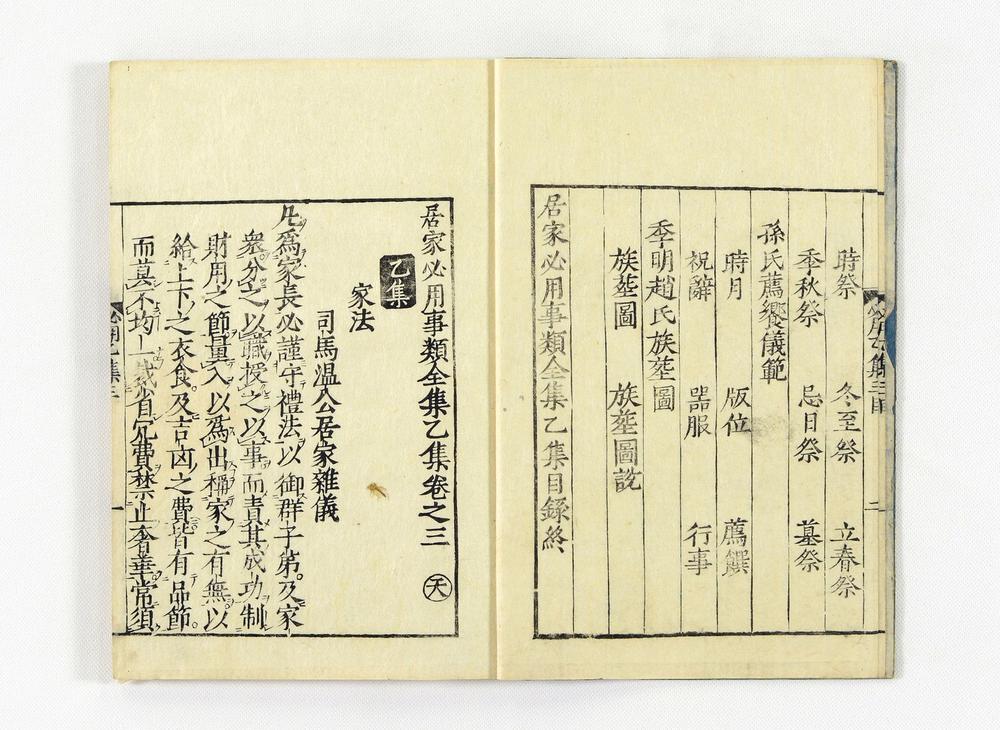 時祭 冬至祭 立春祭
季秋祭 忌日祭 墓祭
孫氏薦饗儀範
時月 版位 薦饌
祝辭 器服 行事
季明趙氏族塟圖
族塟圖 族塟圖說
居家必用事類全集乙集目錄終
居家必用事類全集乙集卷之三 天
乙集
家法
司馬溫公居家雜儀
凡爲家長必謹守禮法以御群子弟及家
衆分之以職授之以事而責其成功制
財用之節量入以爲出稱家之有無以
給上下之衣食及吉凶之費皆有品節
而莫不均一裁省冗費禁止奢華常須